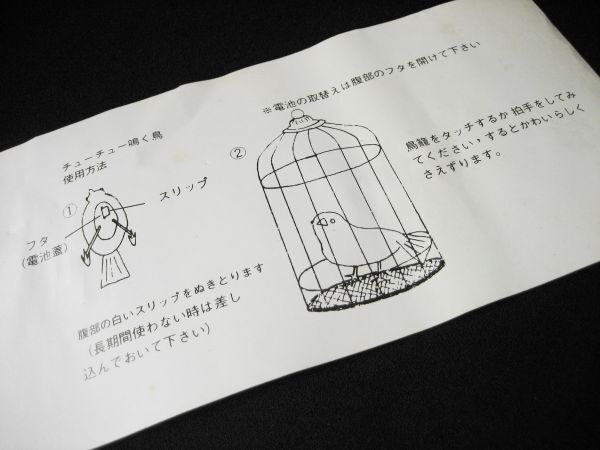 チューチュー鳴く鳥
使用方法
①
スリップ
フタ
(電池蓋)
腹部の白いスリップをぬきとります
(長期間使わない時は差し
込んでおいて下さい)
※電池の取替えは腹部のフタを開けて下さい
②
鳥籠をタッチするか 拍手をしてみ
てください，するとかわいらしく
さえずります。